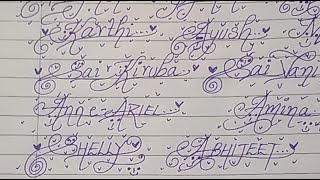 Karthi Ayush
Sai Kiruba Sai Vani
Anne Ariel Amina
Shelly Abhijeet